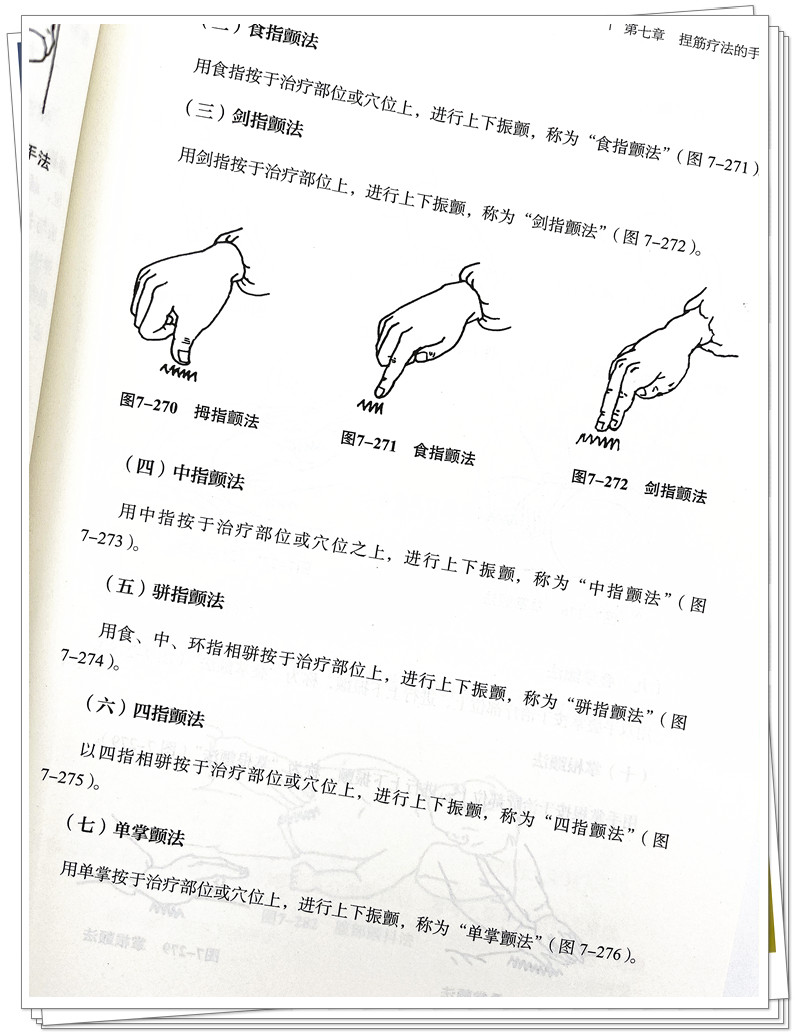 第七章 捏筋疗法的手
（二）食指颤法
用食指按于治疗部位或穴位上，进行上下振颤，称为“食指颤法”（图 7-271）
（三）剑指颤法
用剑指按于治疗部位上，进行上下振颤，称为“剑指颤法”（图 7-272）。
手法
图7-270 拇指颤法
图7-271 食指颤法
图7-272 剑指颤法
（四）中指颤法
用中指按于治疗部位或穴位之上，进行上下振颤，称为“中指颤法”（图
7-273）。
（五）骈指颤法
用食、中、环指相骈按于治疗部位上，进行上下振颤，称为“骈指颤法”（图
7-274）。
（六）四指颤法
以四指相骈按于治疗部位或穴位上，进行上下振颤，称为“四指颤法”（图
7-275）。
（七）单掌颤法
用单掌按于治疗部位或穴位上，进行上下振颤，称为“单掌颤法”（图 7-276）。